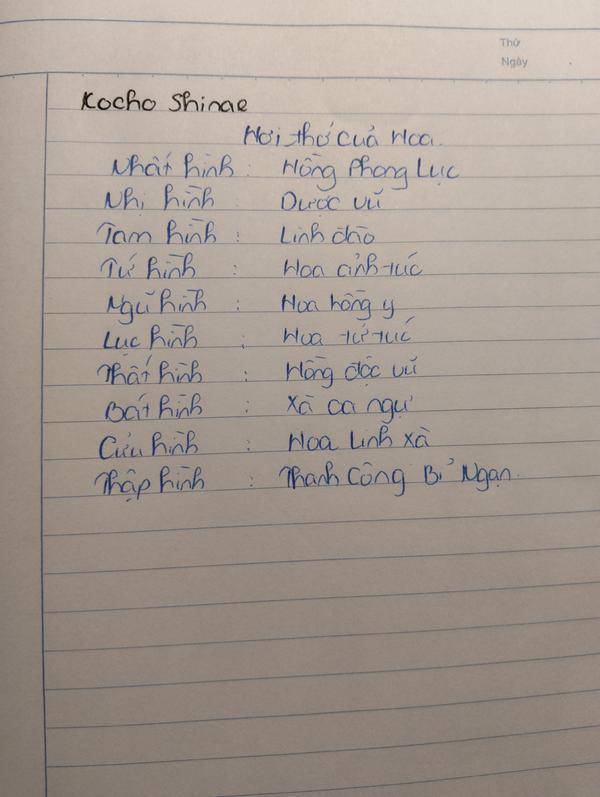 Thứ
Ngày
Kocho Shinae
Hơi thở của Hoa
Nhất hình : Hồng Phong Lục
Nhị hình : Dược vũ
Tam hình : Linh đào
Tứ hình : Hoa cảnh tức
Ngũ hình : Hoa hồng y
Lục hình : Hoa tử tức
Thất hình : Hồng độc vũ
Bát hình : Xà ca ngự
Cửu hình : Hoa Linh xà
Thập hình : Thanh Công Bỉ Ngạn.